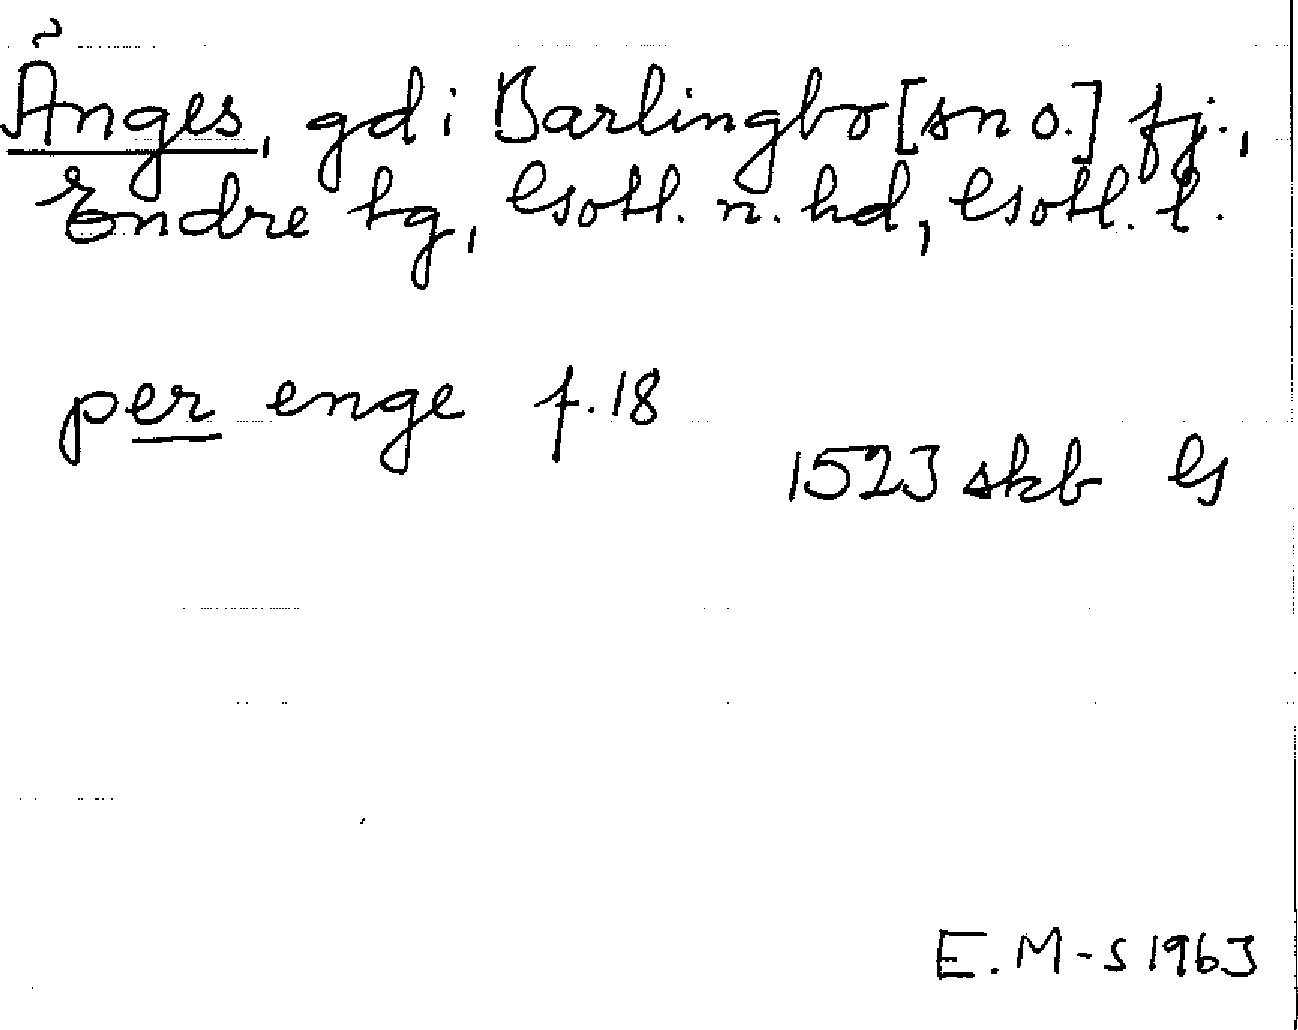 Änges, gd i Barlingbo [sn o.] fj.,
Endre tg, Gotl. n. hd, Gotl. l.
per enge f. 18
1523 skb G
E. M-S 1963